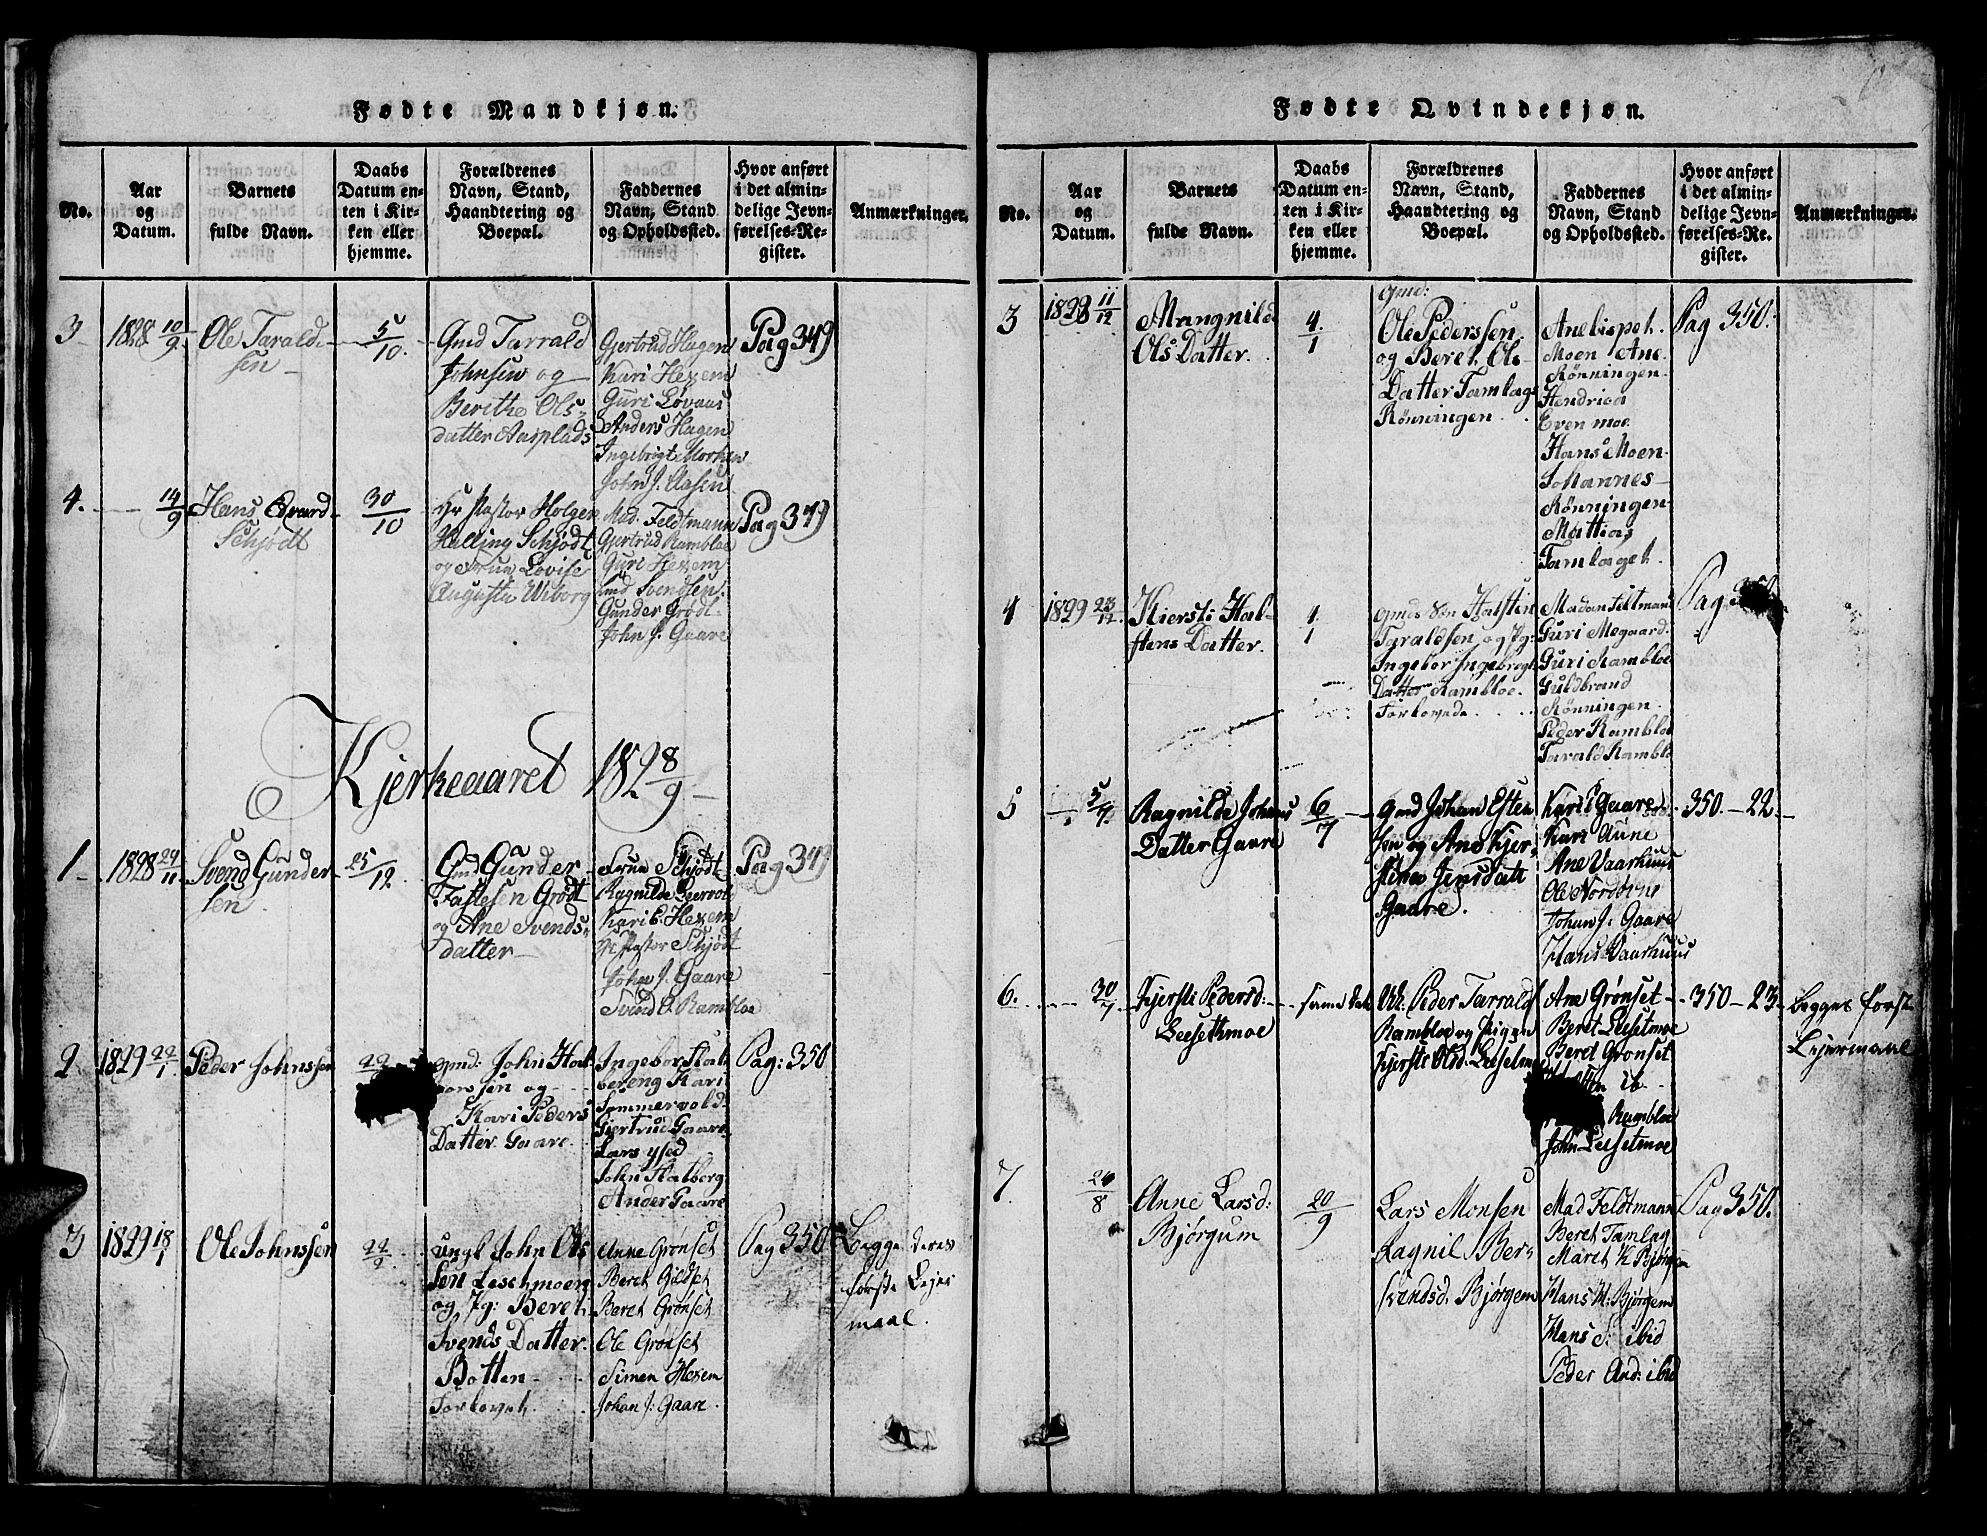 Fødte Mandkjøn.
No.
Aar
og
Datum.
Barnets
fulde Navn.
Daabs
Datum en-
ten i Kir-
ken eller
hjemme.
Forældrenes
Navn, Stand,
Haandtering og
Boepæl.
Faddernes
Navn, Stand
og Opholdssted.
Hvor anført
i det almin-
delige Jevn-
førelses-Re-
gister.
Anmærkninger.
3
1828 10/9
Ole Tarald-
sen
5/10.
Gmd Tarrald
Johnsen og
Berithe Ols-
datter Aasplads
Gjertrud Hagen
Kari Hexem
Guri Løvaas
Anders Hagen
Ingebrigt Morken
John J. Aasen
Pag 349
4.
14/9
Hans Edvard
Schjødt
30/10
Hr Pastor Holgen
Halling Schjødt
og Frue Lovise
Augusta Wiborg
Mad. Feldtmann
Gjertrud Rambloe
Guri Hexem
Svendsen.
Gunder Grødt
John J. Gaare
Pag 349
Kjerkeaaret 1828/9
1
1828 24/11
Svend Gunder
sen
25/12
Gmd Gunder
Faslesen Grødt
og Ane Svends-
datter
Frue Schjødt
Ragnilde
Kari E. Hexem
Hr Pastor Schjødt
John J. Gaare
Svend O. Rambloe
Pag 349
2
1829 22/1
Peder Johnssen
22
gmd: John Hal
vorssen og
Kari Peders
Datter Gaare
Ingebor Hal
bereng Kari
Sommervold
Gjertrud Gaare
Lars
John Halberg
Ander Gaare
Pag: 350
3
1829 18/1
Ole Johnssen
22/2
ungk John Ols
sen Leschmoen
og Pg: Beret
Svends Datter
Botten
Forlovet.
Anne Grønset
Beret Gildset
Beret Grønset
Ole Grønset
Simen Hexem
Johan J: Gaare
Pag 350
Begge deres
første Lejer
maal.
Fødte Qvindekjøn.
No.
Aar
og
Datum.
Barnets
fulde Navn.
Daabs
Datum en-
ten i Kir-
ken eller
hjemme.
Forældrenes
Navn, Stand,
Haandtering og
Boepæl.
Faddernes
Navn, Stand
og Opholdssted.
Hvor anført
i det almin-
delige Jevn-
førelses-Re-
gister.
Anmærkninger.
3
1828 11/12
Mangnild
Ols Datter.
4/1
Gmd:
Ole Pederssen
og Beret Ols
Datter Tamlags
Rønningen
Anelispet
Moen Ane
Rønningen
Hendrica
Even moe
Hans Moen
Johannes
Rønningen
Mattias
Tamlaget.
Pag 350.
4
1829 23/12
Kiersti Hal-
stens Datter.
4/1
Gmds Søn Halsten
Taraldsen og Pg:
Ingebor Ingebregt
Datter Rambloe.
Forlovede
Madan Feltmand
Guri Megaard
Guri Rambloe
Guldbrand
Rønningen
Peder Rambloe
Tarald Rambloe
Pag
5
5/7.
Ragnilde Johans
Datter Gaare
6/7
Gmd Johan Esten
sen og Ane Kjer-
stina Jensdatt
Gaare.
Kari Gaare
Kari Aune
Ane Vaarhuus
Ole
Johan J. Gaare
Hans Vaarhuus
350-22.
6.
30/7
Kjersti Pedersd:
Leesethmoe
samme Dat
Uk: Peder Tarrald
Rambloe og Pigen
Kjersti Olsd. Leesetmoe
Ane Grønset
Beret Leesetmoe
Beret Grønset
ib
Rambloe
John Leesetmoe
350-23
begges første
Lejermaal
7.
24/8
Anne Larsd:
Bjørgum
20/9
Lars Monsen
Ragnil Ber-
svendsd. Bjørgem
Mad Feldtmann
Beret Tamlag
Maret K Bjørgem
Hans M: Bjørgem
Hans S: ibid
Peder And: ibid
Pag 350.